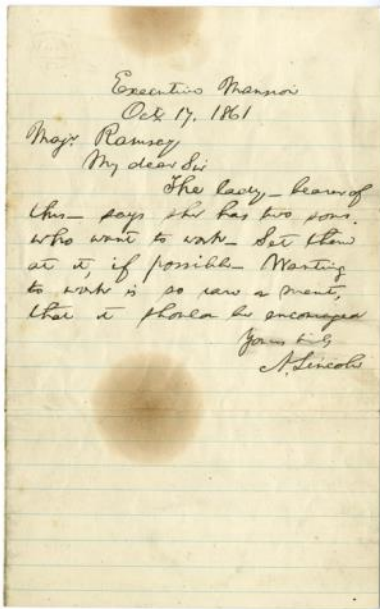 Executive Mansion
Oct. 17, 1861
Majr. Ramsey
My dear Sir
The lady—bearer of
this—says she has two sons
who want to work—Set them
at it, if possible—Wanting
to work is so rare a merit,
that it should be encouraged
Yours truly
A. Lincoln